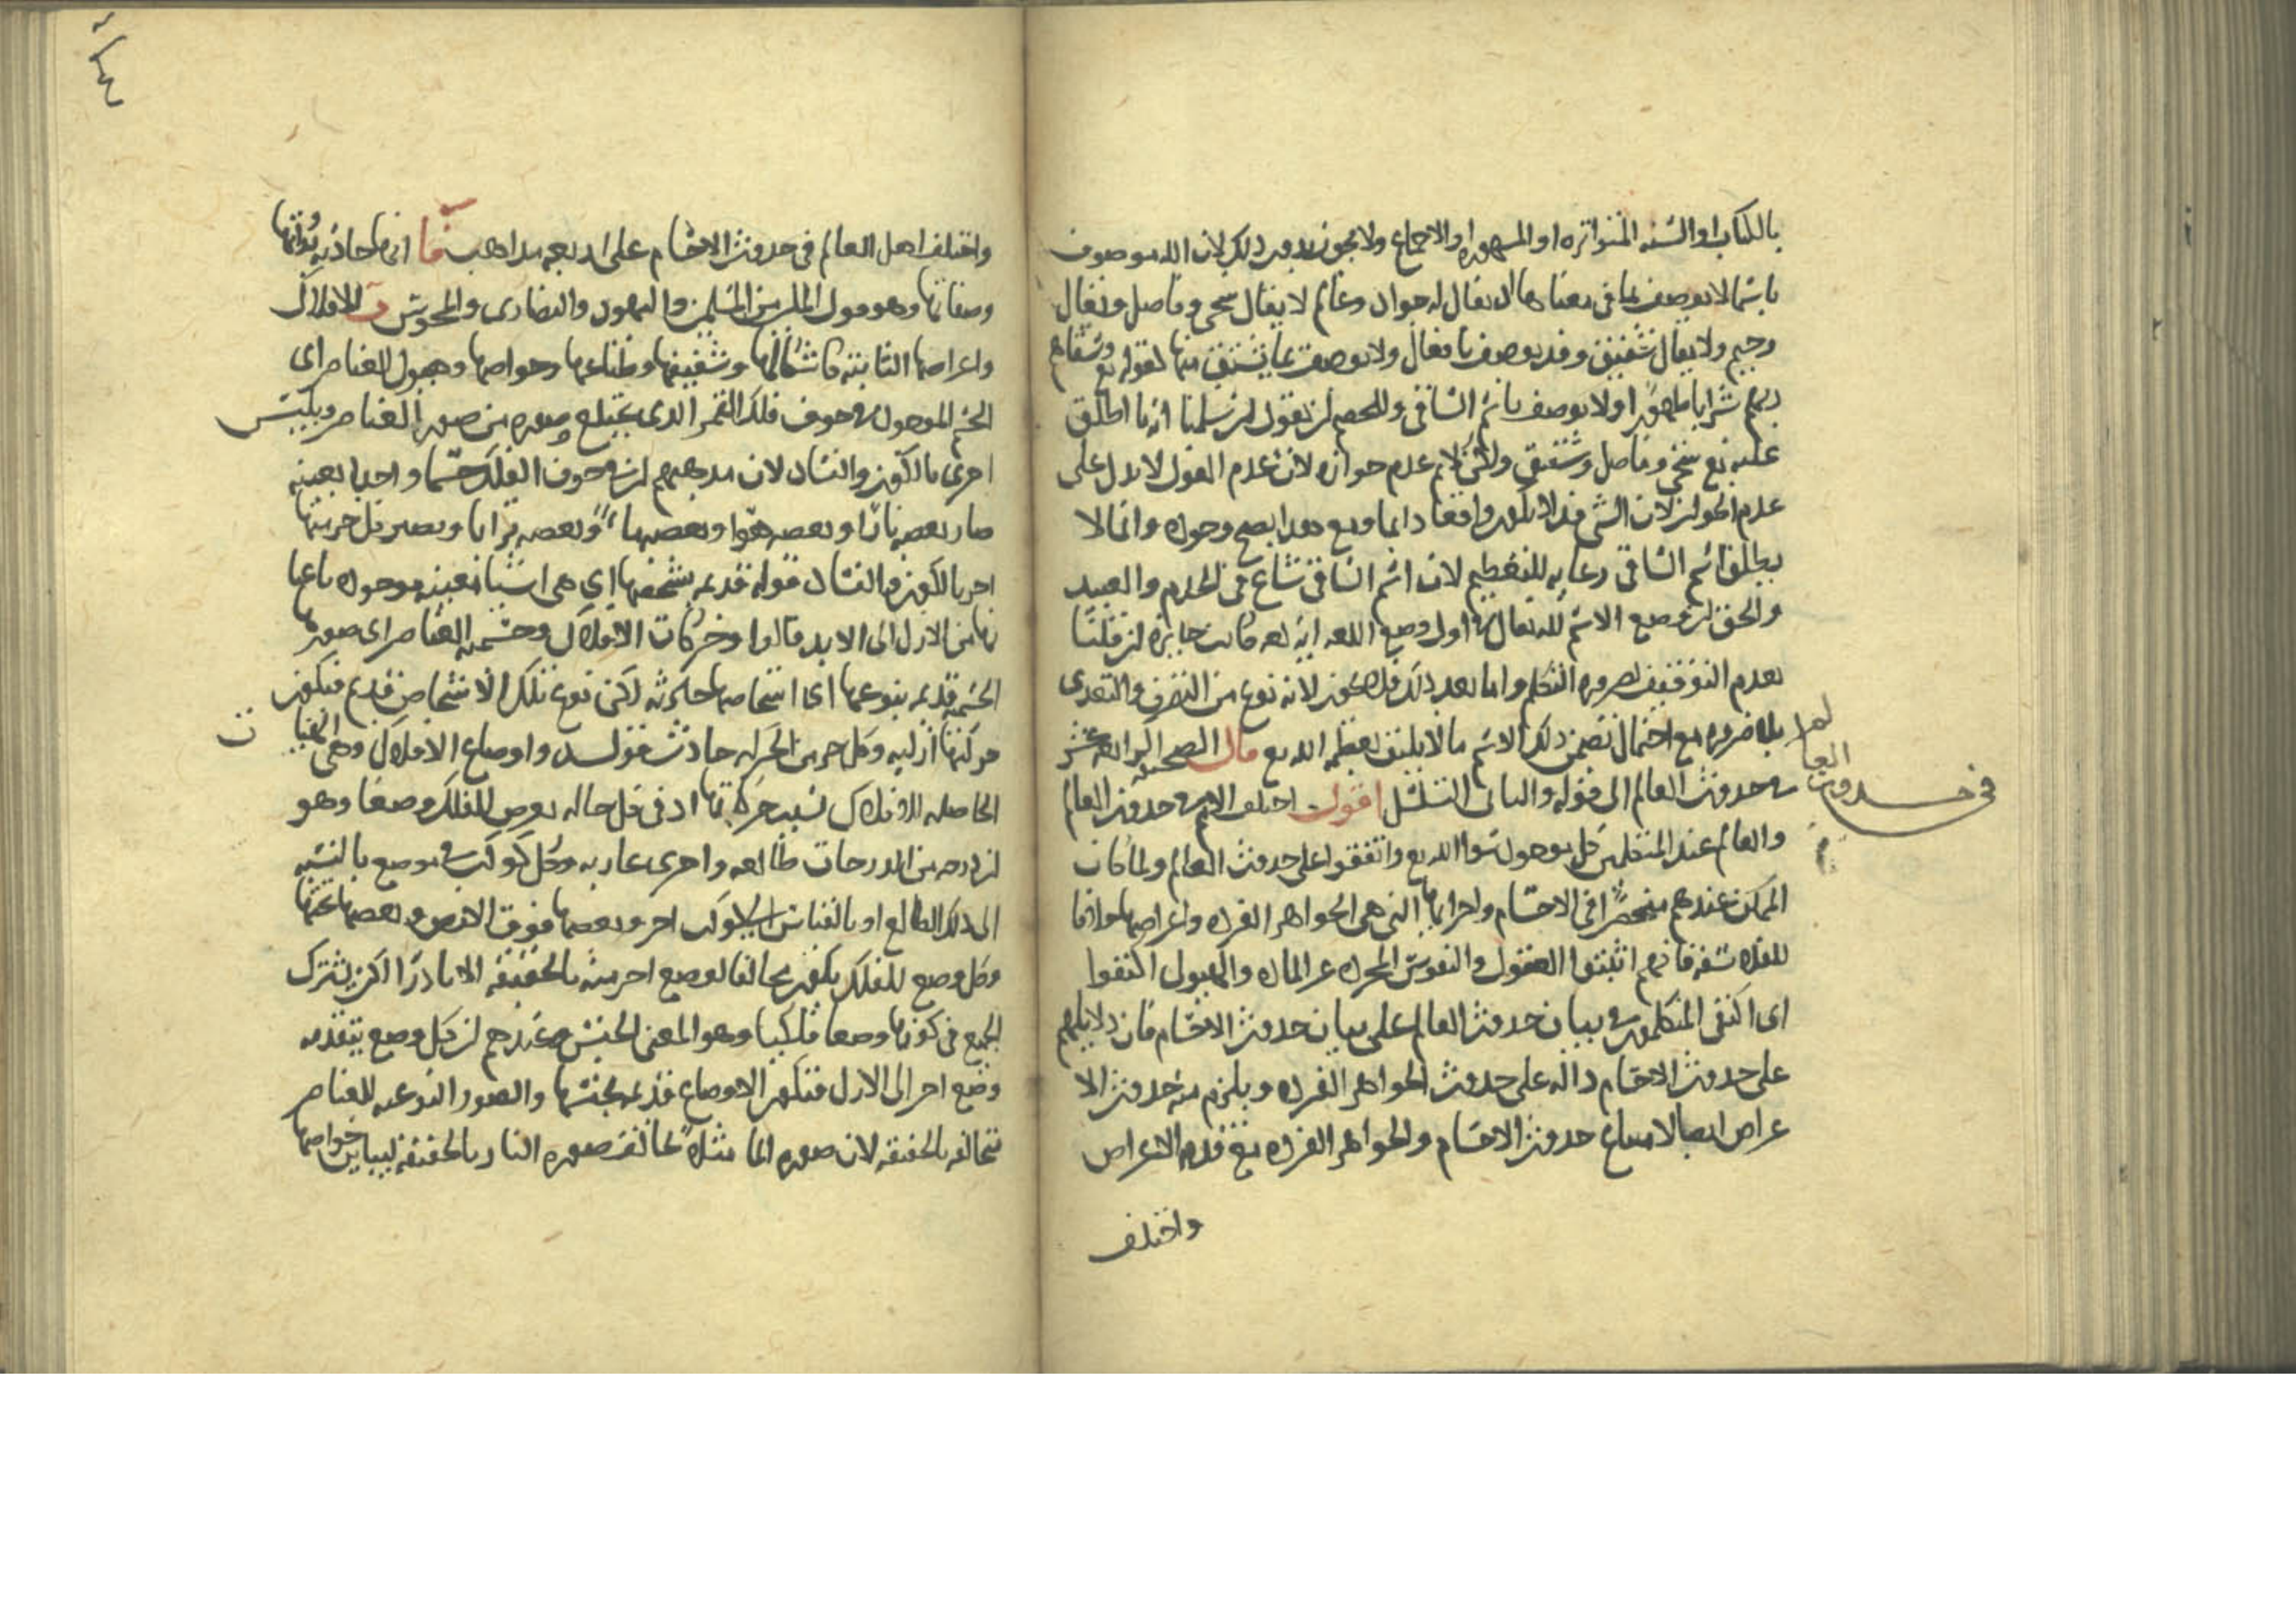 بالكتاب او السنه المتواتره او المشهوره او الاجماع ولا يجوز بدون ذلك لان الله موصوف
باسما لا يوصف بما فى معناها اذ يقال له جواد وعالم لا يقال سخى وفاضل ويقال
رحيم ولا يقال شفيق وقد يوصف بافعال ولا يوصف بما يشتق منها لقوله تع وسقاهم
ربهم شرابا طهورا ولا يوصف باسم الساقى وللخصم ان يقول ان سلمنا انه ما اطلق
عليه تع سخى وفاضل وشفيق ولكن لا نم عدم جوازه لان عدم القول لا يدل على
عدم الجواز لان الشى قد لا يكون واقعا دايما ومع هذا يصح وجوده وانما لا
يطلق اسم الساقى رعايه للتعظيم لان اسم الساقى شاع فى الخدم والعبيد
والحق ان وضع الاسم لله تعالى فى اول وضع اللغه ايه لغه كانت جايزه ان قلنا
بعدم التوقيف لضروره التكلم واما بعد ذلك فلا يجوز لانه نوع من التصرف والتعدى
بلا ضروره مع احتمال تضمن ذلك الاسم ما لا يليق بعظمه الله تع قال الصحيفه الرابعه عشر
فى حدوث العالم الى قوله والثانى التسلسل اقول اختلف الامم فى حدوث العالم
والعالم عند المتكلمين كل موجود سوا الله تع واتفقوا على حدوث العالم ولما كان
الممكن عندهم منحصرا فى الاجسام واجزايها التى هى الجواهر الفرده واعراضها خلافا
للفلاسفه فانهم اثبتوا العقول والنفوس المجرده عن الماده والهيولى اكتفوا
اى اكتفى المتكلمون فى بيان حدوث العالم على بيان حدوث الاجسام فان دلايلهم
على حدوث الاجسام داله على حدوث الجواهر الفرده ويلزم منه حدوث الا
عراض ايضا لامتناع حدوث الاجسام والجواهر الفرده مع قدم الاعراض
واختلف
فى حدوث العالم
واختلف اهل العالم فى حدوث الاجسام على اربعه مذاهب فا انها حادثه بذواتها
وصفاتها وهو قول الملل من المسلمين واليهود والنصارى والمجوس ب الافلاك
واعراضها الثابته كاشكالها وشفيفها وطبايعها وخواصها وهيولى العناصر اى
الجسم الموجود فى جوف فلك القمر الذى يخلع صوره من صور العناصر ويلبس
اخرى بالكون والفساد لان مذهبهم ان فى جوف الفلك جسما واحدا بعينه
صار بعضه نارا وبعضه هوا وبعضه ما وبعضه ترابا ويصير كل جز منها
اخر بالكون والفساد قوله قديمه بشخصها اى هى اشيا معينه موجوده باعيا
نها من الازل الى الابد قالوا وحركات الافلاك وجسميه العناصر اى صورها
الجسميه قديمه بنوعها اى اشخاصها حادثه لكن نوع تلك الاشخاص قديم فتكون
حركتها ازليه وكل جز من الحركه حادث واوضاع الافلاك وهى الهيا ت
الحاصله للافلاك بسبب حركاتها اذ فى كل حاله يعرض للفلك وضعا وهو
ان درجه من الدرجات طالعه واخرى غاربه وكل كوكب فى موضع بالنسبه
الى ذلك الطالع او بالقياس الى كوكب اخر وبعضها فوق الارض وبعضها تحتها
وكل وضع للفلك يكون مخالفا لوضع اخر منه بالحقيقه الا نادرا لكن يشترك
الجميع فى كونها وضعا فلكيا وهو المعنى الجنسى وعندهم ان كل وضع يتقدمه
وضع اخر الى الازل فتكون الاوضاع قديمه بجنسها والصور النوعيه للعناصر
متخالفه بالحقيقه لان صوره الما مثلا تخالف صوره النار بالحقيقه لتباين خواصها